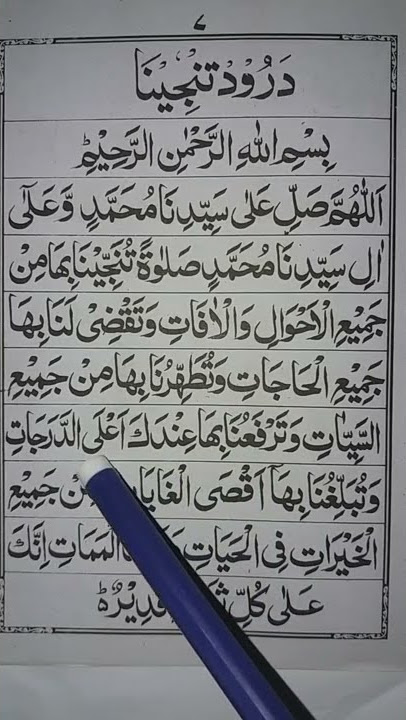 ٧
دَرُوْدْ تُنْجِيْنَا
بِسْمِ اللهِ الرَّحْمٰنِ الرَّحِيْمِ ط
اَللّٰهُمَّ صَلِّ عَلٰى سَيِّدِنَا مُحَمَّدٍ وَّعَلٰٓى
اٰلِ سَيِّدِنَا مُحَمَّدٍ صَلٰوةً تُنَجِّيْنَا بِهَا مِنْ
جَمِيْعِ الْاَحْوَالِ وَالْاٰفَاتِ وَتَقْضِىْ لَنَا بِهَا
جَمِيْعَ الْحَاجَاتِ وَتُطَهِّرُنَا بِهَا مِنْ جَمِيْعِ
السَّيِّاٰتِ وَتَرْفَعُنَا بِهَا عِنْدَكَ اَعْلَى الدَّرَجَاتِ
وَتُبَلِّغُنَا بِهَآ اَقْصَى جَمِيْعِ
الْخَيْرَاتِ فِى الْحَيَاتِ الْمَمَاتِ اِنَّكَ
عَلٰى كُلِّ قَدِيْرٌ ط